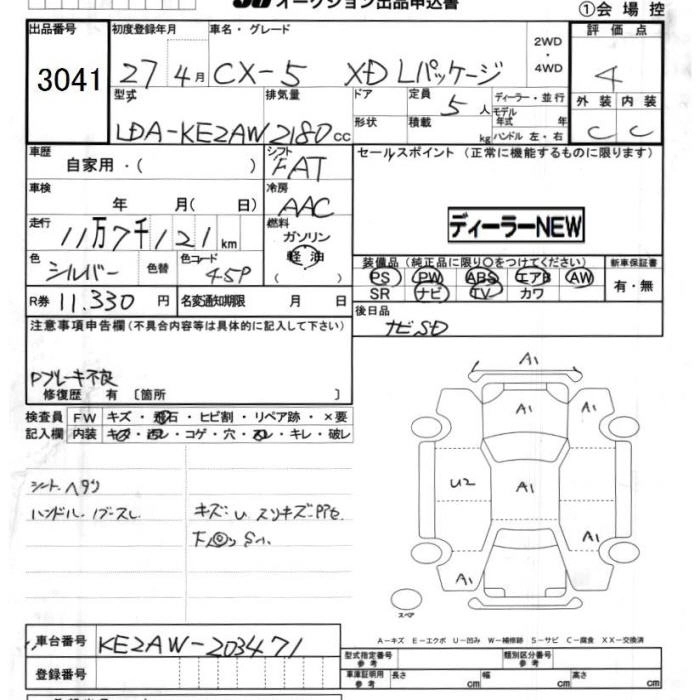 オークション出品申込書
①会場控
出品番号 初度登録年月 車名・グレード 2WD・4WD 評価点
3041 27年4月 CX-5 XD Lパッケージ 4
型式 排気量 ドア 定員 5人 ディーラー・並行 外装 内装
LDA-KE2AW 2180cc 形状 積載 kg モデル年式 年 ハンドル 左・右 C C
車歴 シフト セールスポイント (正常に機能するものに限ります)
自家用・( ) FAT
車検 冷房
年 月( 日) AAC
ディーラーNEW
走行 燃料
11万7千121km ガソリン
軽油
( )
色 色替 色コード
シルバー 45P
装備品 (純正品に限り○をつけてください) 新車保証書
PS PW ABS エアB AW 有・無
SR ナビ TV カワ
R券 11.330円 名変通知期限 月 日
後日品
ナビSD
注意事項申告欄(不具合内容等は具体的に記入して下さい)
Pブレーキ不良
修復歴 有 〔箇所 〕
検査員 FW キズ・飛石・ヒビ割・リペア跡・×要
記入欄 内装 キズ・汚レ・コゲ・穴・スレ・キレ・破レ
シートヘタリ
ハンドル
キズ・U スリキズ
A1
A1 A1
U2 A1
A1
A1
スペア
A-キズ E-エクボ U-凹み W-補修跡 S-サビ C-腐食 XX-交換済
車台番号 KE2AW-203471
登録番号
型式指定番号 参考 類別区分番号 参考
車庫証明用 参考 長さ cm 幅 cm 高さ cm